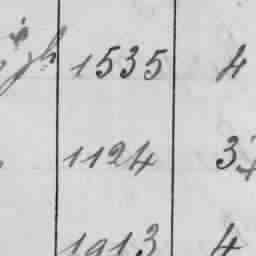 1535 4
1124 3
1913 4